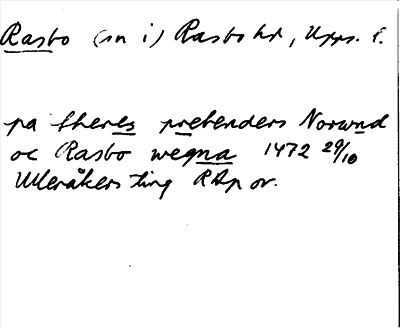 Rasbo (sn i) Rasbo hd, Upps. l.
pa theres pretenders Norwnd
oc Rasbo wegna 1472 29/10
Ulleråkers ting RAp or.